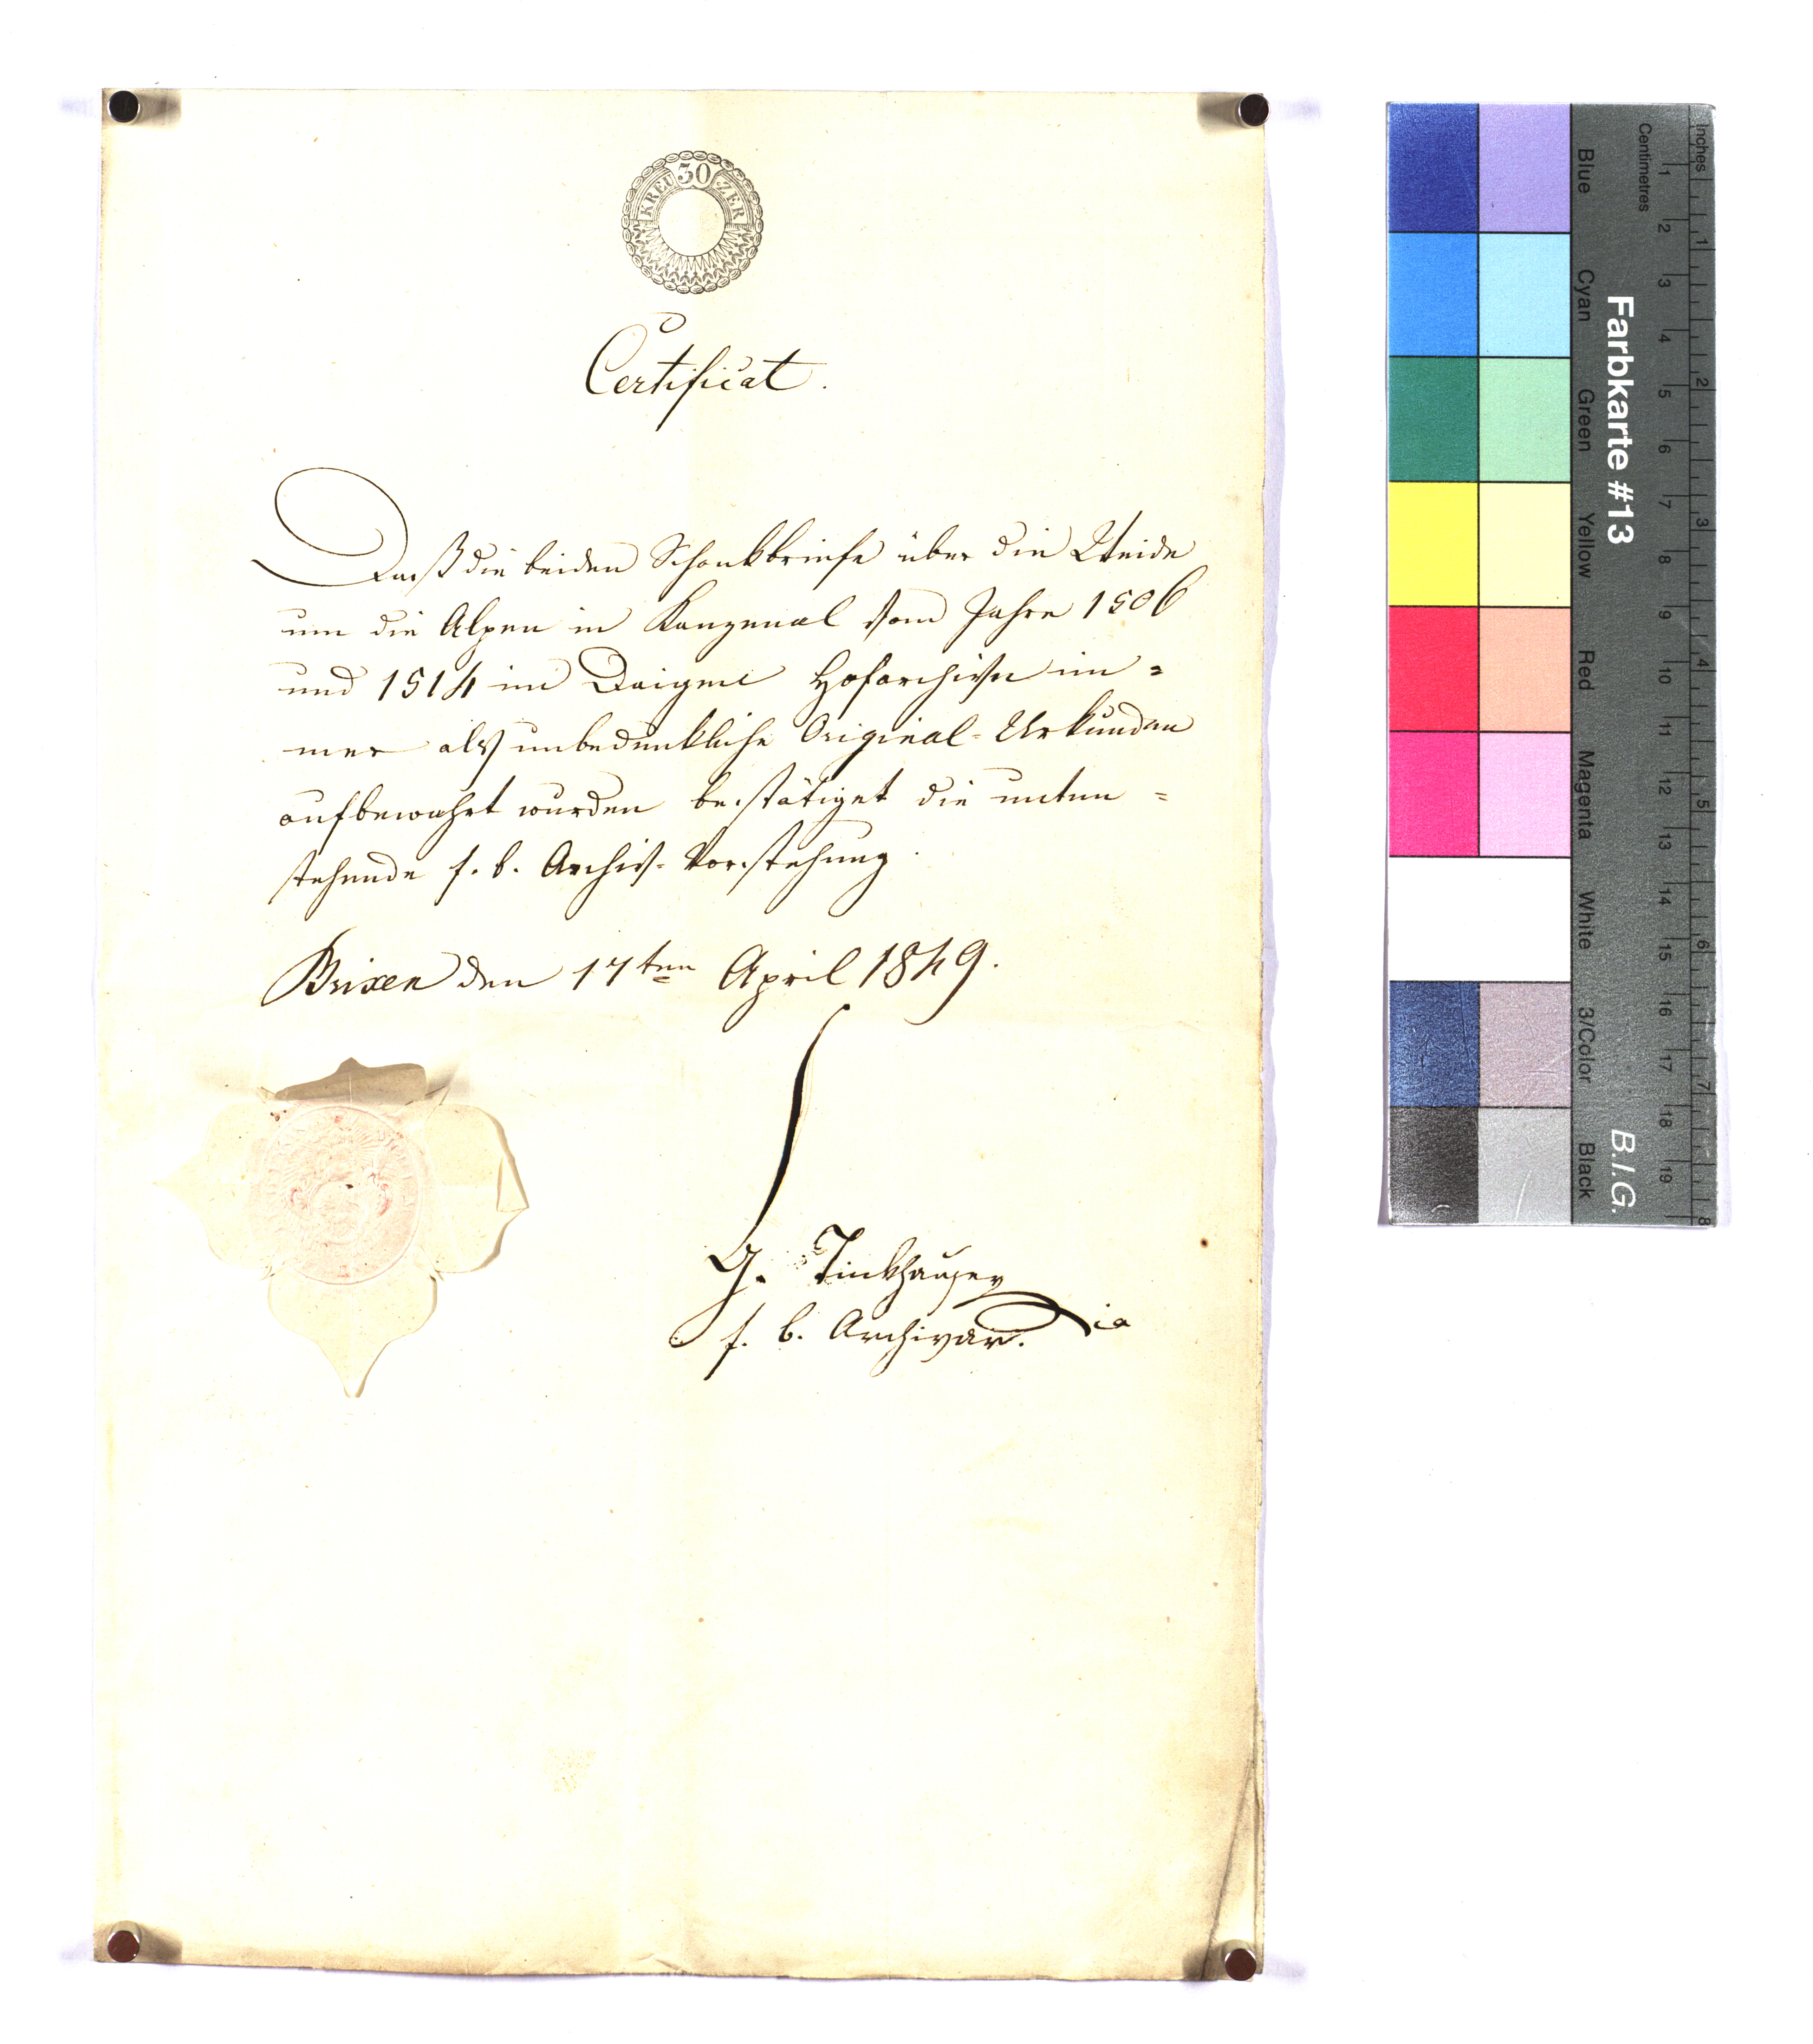 30
KREUZER
Certificat.
Daß die beiden Schankbriefe über die Weide
um die Alpen in Kanzenal vom Jahre 1506
und 1514 im Hofarchive im=
mer als unbedenkliche Original-Urkunden
aufbewahrt wurden bestätiget die unten=
stehende f. b. Archiv-Vorstehung.
Brixen den 17ten April 1849.
G. Tinkhauser
f. b. Archivar.
Farbkarte #13
B.I.G.
Inches
Centimetres
1 2 3 4 5 6 7 8 9 10 11 12 13 14 15 16 17 18 19
1 2 3 4 5 6 7 8
Blue
Cyan
Green
Yellow
Red
Magenta
White
3/Color
Black